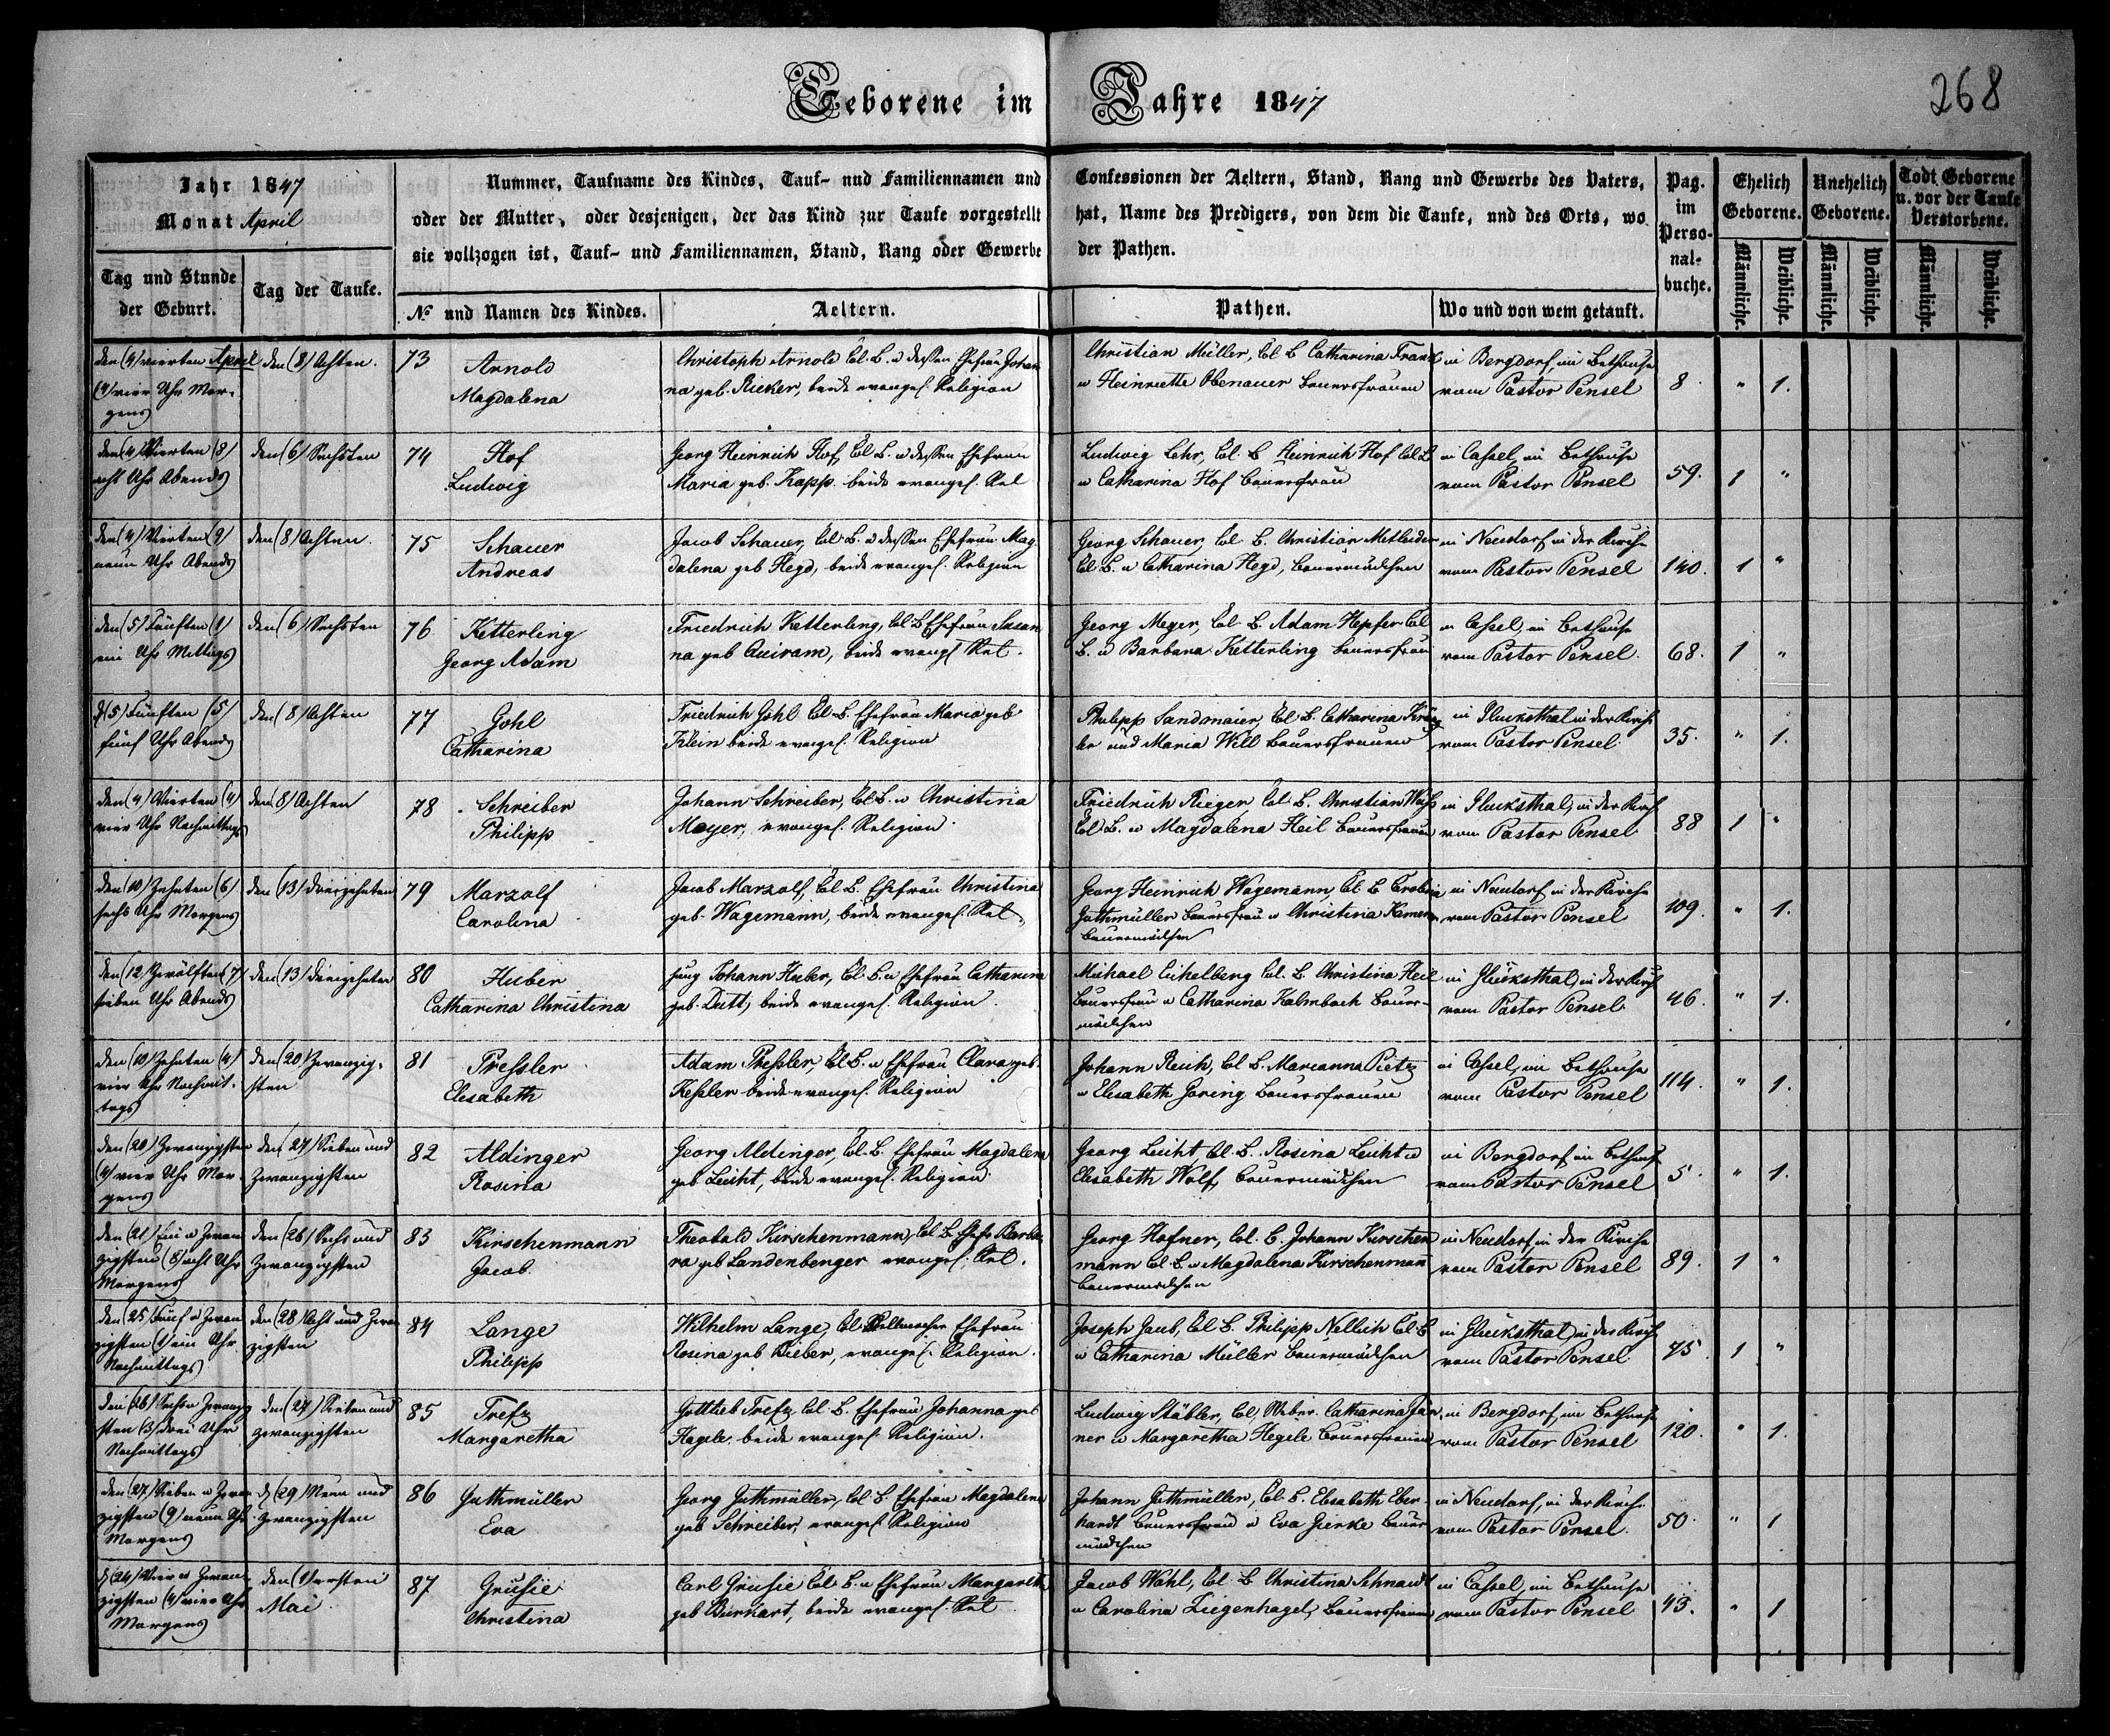 Geborene im Jahre 1847
268
Jahr 1847
Monat April
Nummer, Taufname des Kindes, Tauf- und Familiennamen und Confessionen der Aeltern, Stand, Rang und Gewerbe des Vaters,
oder der Mutter, oder desjenigen, der das Kind zur Taufe vorgestellt hat, Name des Predigers, von dem die Taufe, und des Orts, wo
sie vollzogen ist, Tauf- und Familiennamen, Stand, Rang oder Gewerbe der Pathen.
Pag. im Perso- nal- buche.
Ehelich Geborene.
Unehelich Geborene.
Todt Geborene u. vor der Taufe Verstorbene.
Tag und Stunde der Geburt.
Tag der Taufe.
No und Namen des Kindes.
Aeltern.
Pathen.
Wo und von wem getauft.
Männliche. Weibliche. Männliche. Weibliche. Männliche. Weibliche.
den (4) vierten April den (8) Achten. 73 Arnold Christoph Arnold Col. B. u dessen Ehefrau Johan Christian Müller, Col B Catharina Frank in Bergdorf, im Bethause
(4) vier Uhr Mor- Magdalena na geb. Rieker, beide evangel. Religion u Heinriette Obenauer Bauersfrauen vom Pastor Pensel 8. " 1.
gens
den (4) Vierten (8) den (6) Sechsten 74 Hof Georg Heinrich Hof, Col. B. u dessen Ehefrau Ludwig Lehr, Col. B Heinrich Hof Col B in Cassel, im Bethause
acht Uhr Abends Ludwig Maria geb. Kapp. beide evangel. Rel u Catharina Hof Bauersfrau vom Pastor Pensel 59. 1 "
den (4) Vierten (9) den (8) Achten. 75 Schauer Jacob Schauer, Col. B. u dessen Ehefrau Mag Georg Schauer, Col. B. Christian Metleider in Neudorf in der Kirche
neun Uhr Abends Andreas dalena geb Hegd, beide evangel. Religion Col. B. u Catharina Hegd, Bauermädchen vom Pastor Pensel 140. 1 "
den (5) Fünften (1) den (6) Sechsten 76. Ketterling Friedrich Ketterling, Col. B Ehefrau Susan Georg Meyer, Col. B. Adam Hepfer Col in Cassel, im Bethause
ein Uhr Mittags Georg Adam na geb Quiram, beide evangel Rel. B. u Barbara Ketterling Bauersfrau vom Pastor Pensel. 68. 1 "
d (5) Fünften (5) den (8) Achten 77 Gohl Friedrich Gohl Col. B. Ehefrau Maria geb Philipp Sandmaier, Col. B. Catharina in Glucksthal in der Kirche
fünf Uhr Abends Catharina Klein beide evangel. Religion und Maria Will Bauersfrauen vom Pastor Pensel. 35. " 1.
den (4) Vierten (4) den (8) Achten 78 Schreiber Johann Schreiber, Col. B. u Christina Friedrich Rieger, Col. B. Christian Weiss in Glucksthal, in der Kirche
vier Uhr Nachmittags Philipp Meyer, evangel. Religion. Col. B. u Magdalena Heil Bauersfrauen vom Pastor Pensel 88 1 "
den (10) Zehnten (6) den (13) dreizehnten 79 Marzolf Jacob Marzolf, Col. B. Ehefrau Christina Georg Heinrich Wagemann, Col. B. Carolina in Neudorf in der Kirche
sechs Uhr Morgens Carolina geb. Wagemann, beide evangel. Rel. Guthmüller Bauersfrau u Christina vom Pastor Pensel 109. " 1.
Bauermädchen
den (12) Zwölften (7) den (13) dreizehnten 80 Huber jung Johann Huber, Col. B. u Ehefrau Catharina Michael Eichelberg Col. B. Christina Heil in Glucksthal, in der Kirche
sieben Uhr Abends Catharina Christina geb. Dutt, beide evangel. Religion. Bauersfrau u Catharina Kalmbach Bauer- vom Pastor Pensel. 46. " 1.
mädchen
den (10) Zehnten (4) den (20) Zwanzig- 81 Pressler Adam Pressler, Col. B. u Ehefrau Clara geb. Johann Reuh, Col B. Marianna Pietz in Cassel, im Bethause
vier Uhr Nachmit- sten Elisabeth Kessler beide evangel. Religion u Elisabeth Goring Bauersfrauen vom Pastor Pensel 114. " 1.
tags
den (20) Zwanzigsten den (27) Sieben und 82 Aldinger Georg Aldinger, Col. B. Ehefrau Magdalena Georg Leicht Col. B. Rosina Leicht u in Bergdorf im Bethause
(4) vier Uhr Mor- Zwanzigsten Rosina geb Leicht, beide evangel. Religion Elisabeth Wolf, Bauermädchen vom Pastor Pensel 5. " 1.
gens
den (21) Ein u Zwan den (26) Sechs und 83 Kirschenmann Theobald Kirschenmann, Col. B. Ehefr Barba Georg Hafner, Col. B. Johann Kirschen in Neudorf, in der Kirche
zigsten (8) acht Uhr Zwanzigsten Jacob. ra geb Landenberger evangel. Rel. mann Col B. u Magdalena Kirschenmann vom Pastor Pensel 89. 1 "
Morgens Bauermädchen
den (25) Fünf u Zwan den (28) Acht und Zwan 84 Lange Wilhelm Lange, Col. Ehefrau Joseph Gaub, Col B. Philipp Nellich Col. B in Glucksthal, in der Kirche
zigsten (1) ein Uhr zigsten Philipp Rosina geb Bieber, evangel. Religion. u Catharina Müller Bauermädchen vom Pastor Pensel. 75. 1 "
Nachmittags
den (26) Sechs u Zwanzig den (27) Sieben und 85 Trefz Gottlieb Trefz, Col. B. Ehefrau Johanna geb Ludwig Stäbler, Col, Weber. Catharina in Bergdorf im Bethause
sten (3) drei Uhr Zwanzigsten Margaretha Hagele beide evangel. Religion. ner u Margaretha Hegele Bauersfrauen vom Pastor Pensel 120. " 1.
Nachmittags
den (27) Sieben u Zwan d (29) Neun und 86 Guthmüller Georg Guthmüller, Col. B. Ehefrau Magdalena Johann Guthmüller, Col. B. Elisabeth Eber- in Neudorf, in der Kirche
zigsten (9) neun Uhr Zwanzigsten Eva geb Schreiber, evangel. Religion hardt Bauersfrau u Eva Gierke Bauer vom Pastor Pensel. 50. " 1
Morgens mädchen
d (24) Vier u Zwan den (1) ersten 87 Grusie Carl Grusie Col. B. u Ehefrau Margareth Jacob Wahl, Col. B Christina Schnaidt in Cassel, im Bethause
zigsten (4) vier Uhr Mai. Christina geb Burkart, beide evangel. Rel u Carolina Ziegenhagel, Bauersfrauen vom Pastor Pensel 43. " 1
Morgens